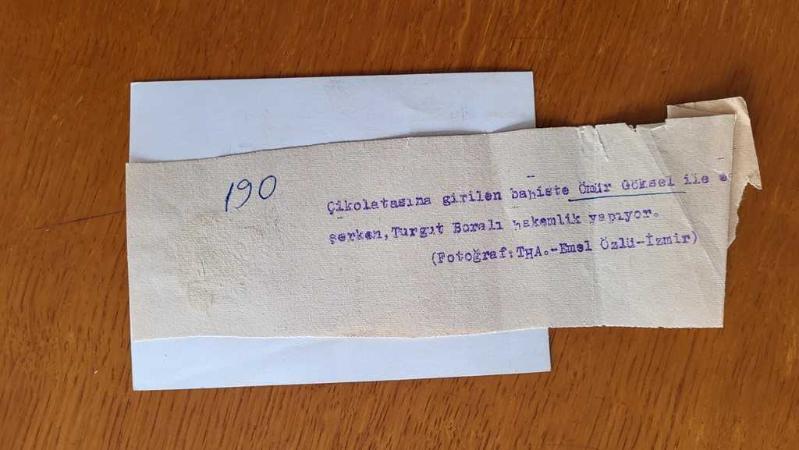 190
Çikolatasına girilen bahiste Ömür Göksel ile
şerken, Turgut Boralı hakemlik yapıyor.
(Fotoğraf: THA.-Emel Özlü-İzmir)